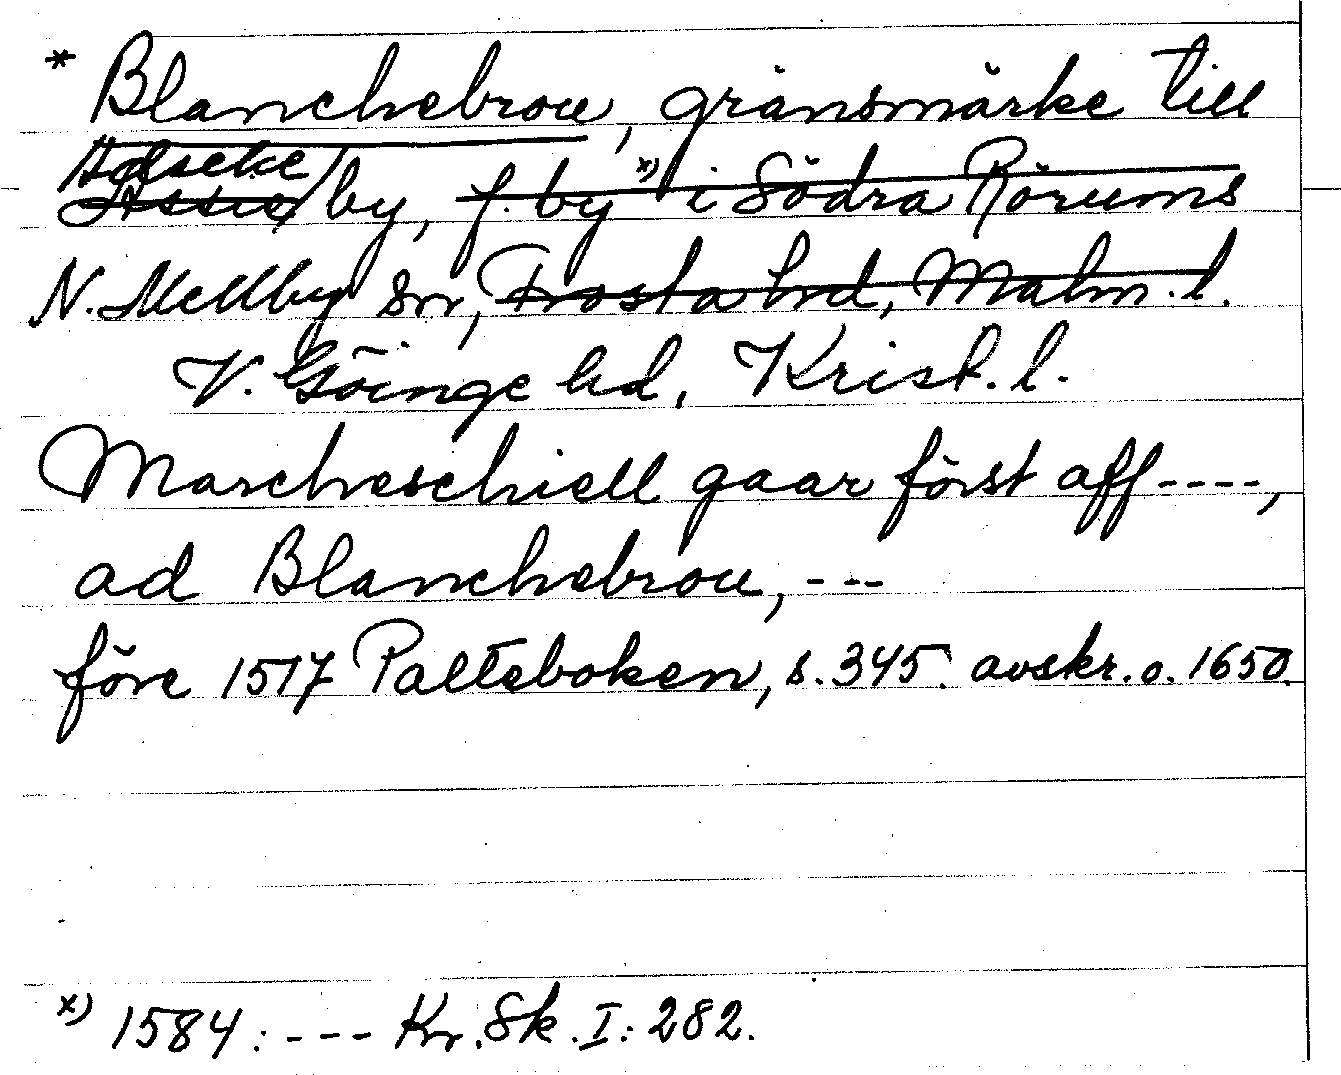 * Blanchebrou, gränsmärke till
Adseke
Assie by, f. by x) i Södra Rörums
N. Mellby sn, Frosta hd, Malm. l.
V. Göinge hd, Krist. l.
Marcheschiell gaar först aff ----,
ad Blanchebrou, ---
före 1517 Palteboken, s. 345. avskr. o. 1650.
x) 1584: --- Kr. Sk. I: 282.